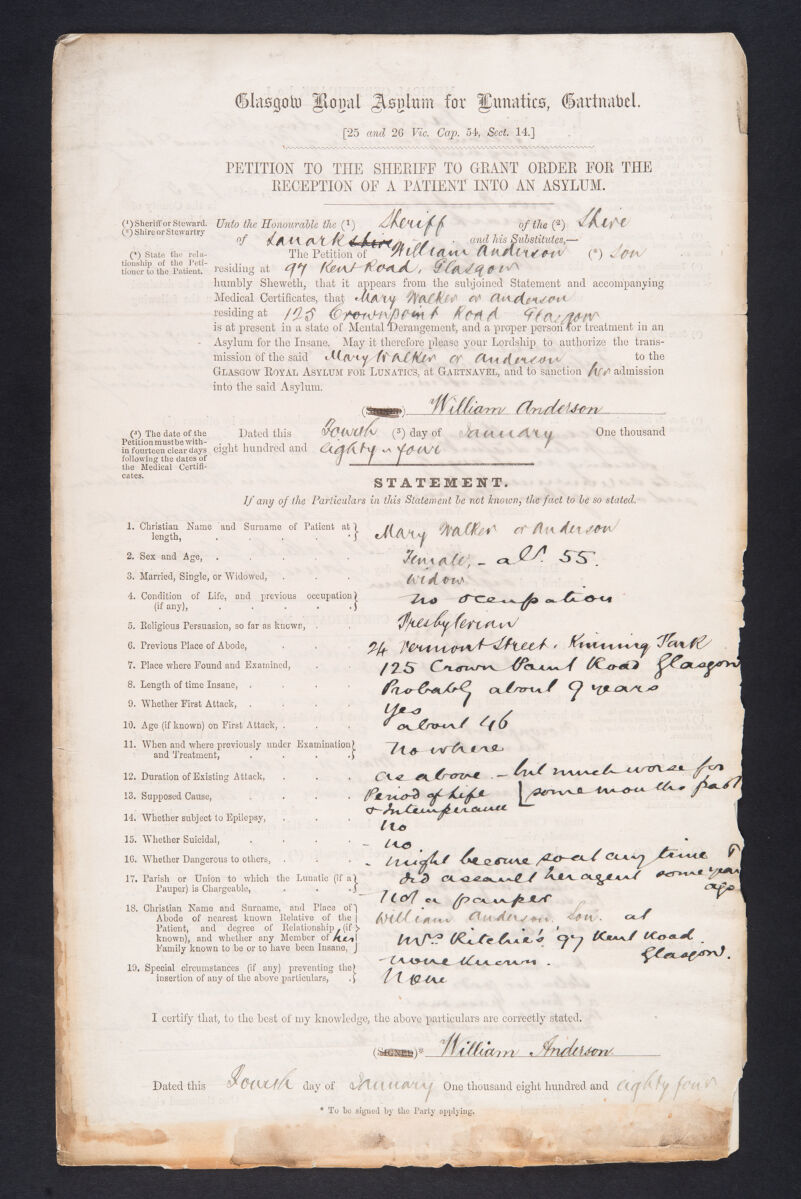 Glasgow Royal Asylum for Lunatics, Gartnavel.
[25 and 26 Vic. Cap. 54, Sect. 14.]
PETITION TO THE SHERIFF TO GRANT ORDER FOR THE
RECEPTION OF A PATIENT INTO AN ASYLUM.
(¹) Sheriff or Steward.
(²) Shire or Stewartry
Unto the Honourable the (¹) Sheriff of the (²) Shire
of Lanarkshire and his Substitutes,—
(*) State the rela-
tionship of the Peti-
tioner to the Patient.
The Petition of William Anderson (*) Son
residing at 97 Kent Road, Glasgow
humbly Sheweth, that it appears from the subjoined Statement and accompanying
Medical Certificates, that Mary Walker or Anderson
residing at 125 Crownpoint Road Glasgow
is at present in a state of Mental Derangement, and a proper person for treatment in an
Asylum for the Insane. May it therefore please your Lordship to authorize the trans-
mission of the said Mary Walker or Anderson to the
GLASGOW ROYAL ASYLUM FOR LUNATICS, at GARTNAVEL, and to sanction her admission
into the said Asylum.
(SIGNED) William Anderson
(³) The date of the
Petition must be with-
in fourteen clear days
following the dates of
the Medical Certifi-
cates.
Dated this Fourth (³) day of January One thousand
eight hundred and eighty four
STATEMENT.
If any of the Particulars in this Statement be not known, the fact to be so stated.
1. Christian Name and Surname of Patient at
length, Mary Walker or Anderson
2. Sex and Age, Female, - aet. 55.
3. Married, Single, or Widowed, widow
4. Condition of Life, and previous occupation
(if any), no occupation
5. Religious Persuasion, so far as known, Presbyterian
6. Previous Place of Abode, 24 Vermont Street, Kinning Park
7. Place where Found and Examined, 125 Crown Point Road Glasgow
8. Length of time Insane, Probably about 9 years
9. Whether First Attack, yes
10. Age (if known) on First Attack, about 46
11. When and where previously under Examination
and Treatment, no where
12. Duration of Existing Attack, as above - but much worse for
some months past
13. Supposed Cause, Period of Life
& Intemperance
14. Whether subject to Epilepsy, no
15. Whether Suicidal, - no
16. Whether Dangerous to others, - might become so at any time
did assault her agent some years
ago
17. Parish or Union to which the Lunatic (if a
Pauper) is Chargeable, Not a pauper
18. Christian Name and Surname, and Place of
Abode of nearest known Relative of the
Patient, and degree of Relationship (if
known), and whether any Member of her
Family known to be or to have been Insane,
William Anderson, Son. at
Mrs Ritchie's, 97 Kent Road.
Glasgow.
none known.
19. Special circumstances (if any) preventing the
insertion of any of the above particulars, None
I certify that, to the best of my knowledge, the above particulars are correctly stated.
(SIGNED)* William Anderson
Dated this Fourth day of January One thousand eight hundred and eighty four
* To be signed by the Party applying.